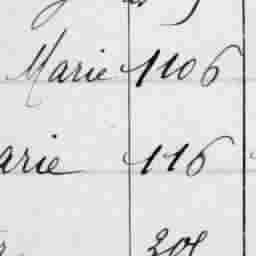 Marie 1106
arie 116
205